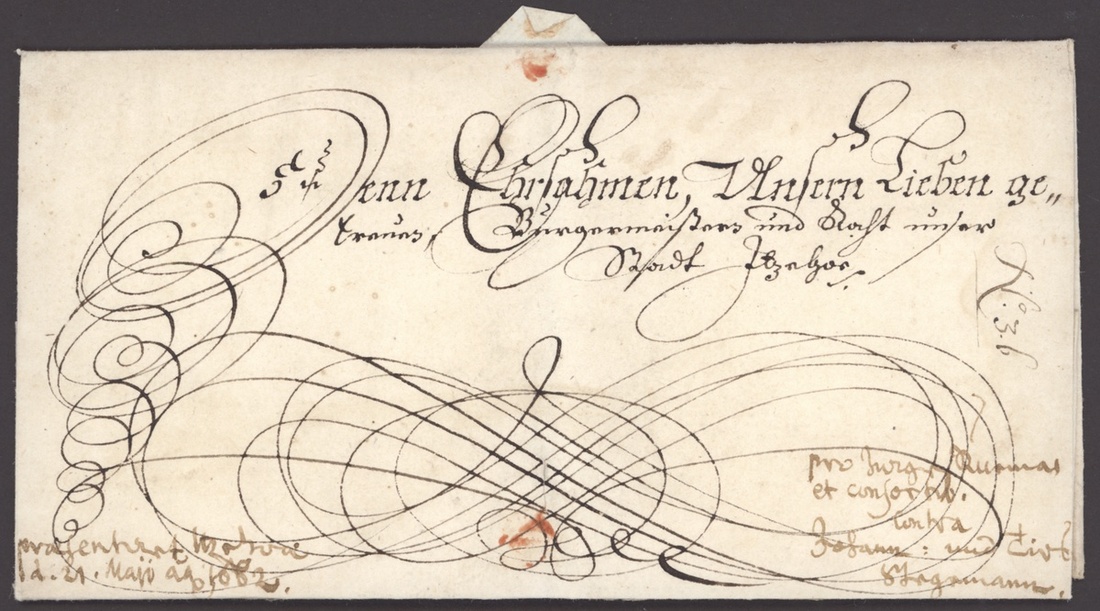 Denn Ehrsahmen, Unsern Lieben ge„
treuen, Burgermeistern und Raht unser
Stadt Itzehoe.
No. 36
pro Jurg
et consortib.
contra
Johann: und
Stegemann.
præsentiret Itzehoe
d. 21. Maij aō 1682.